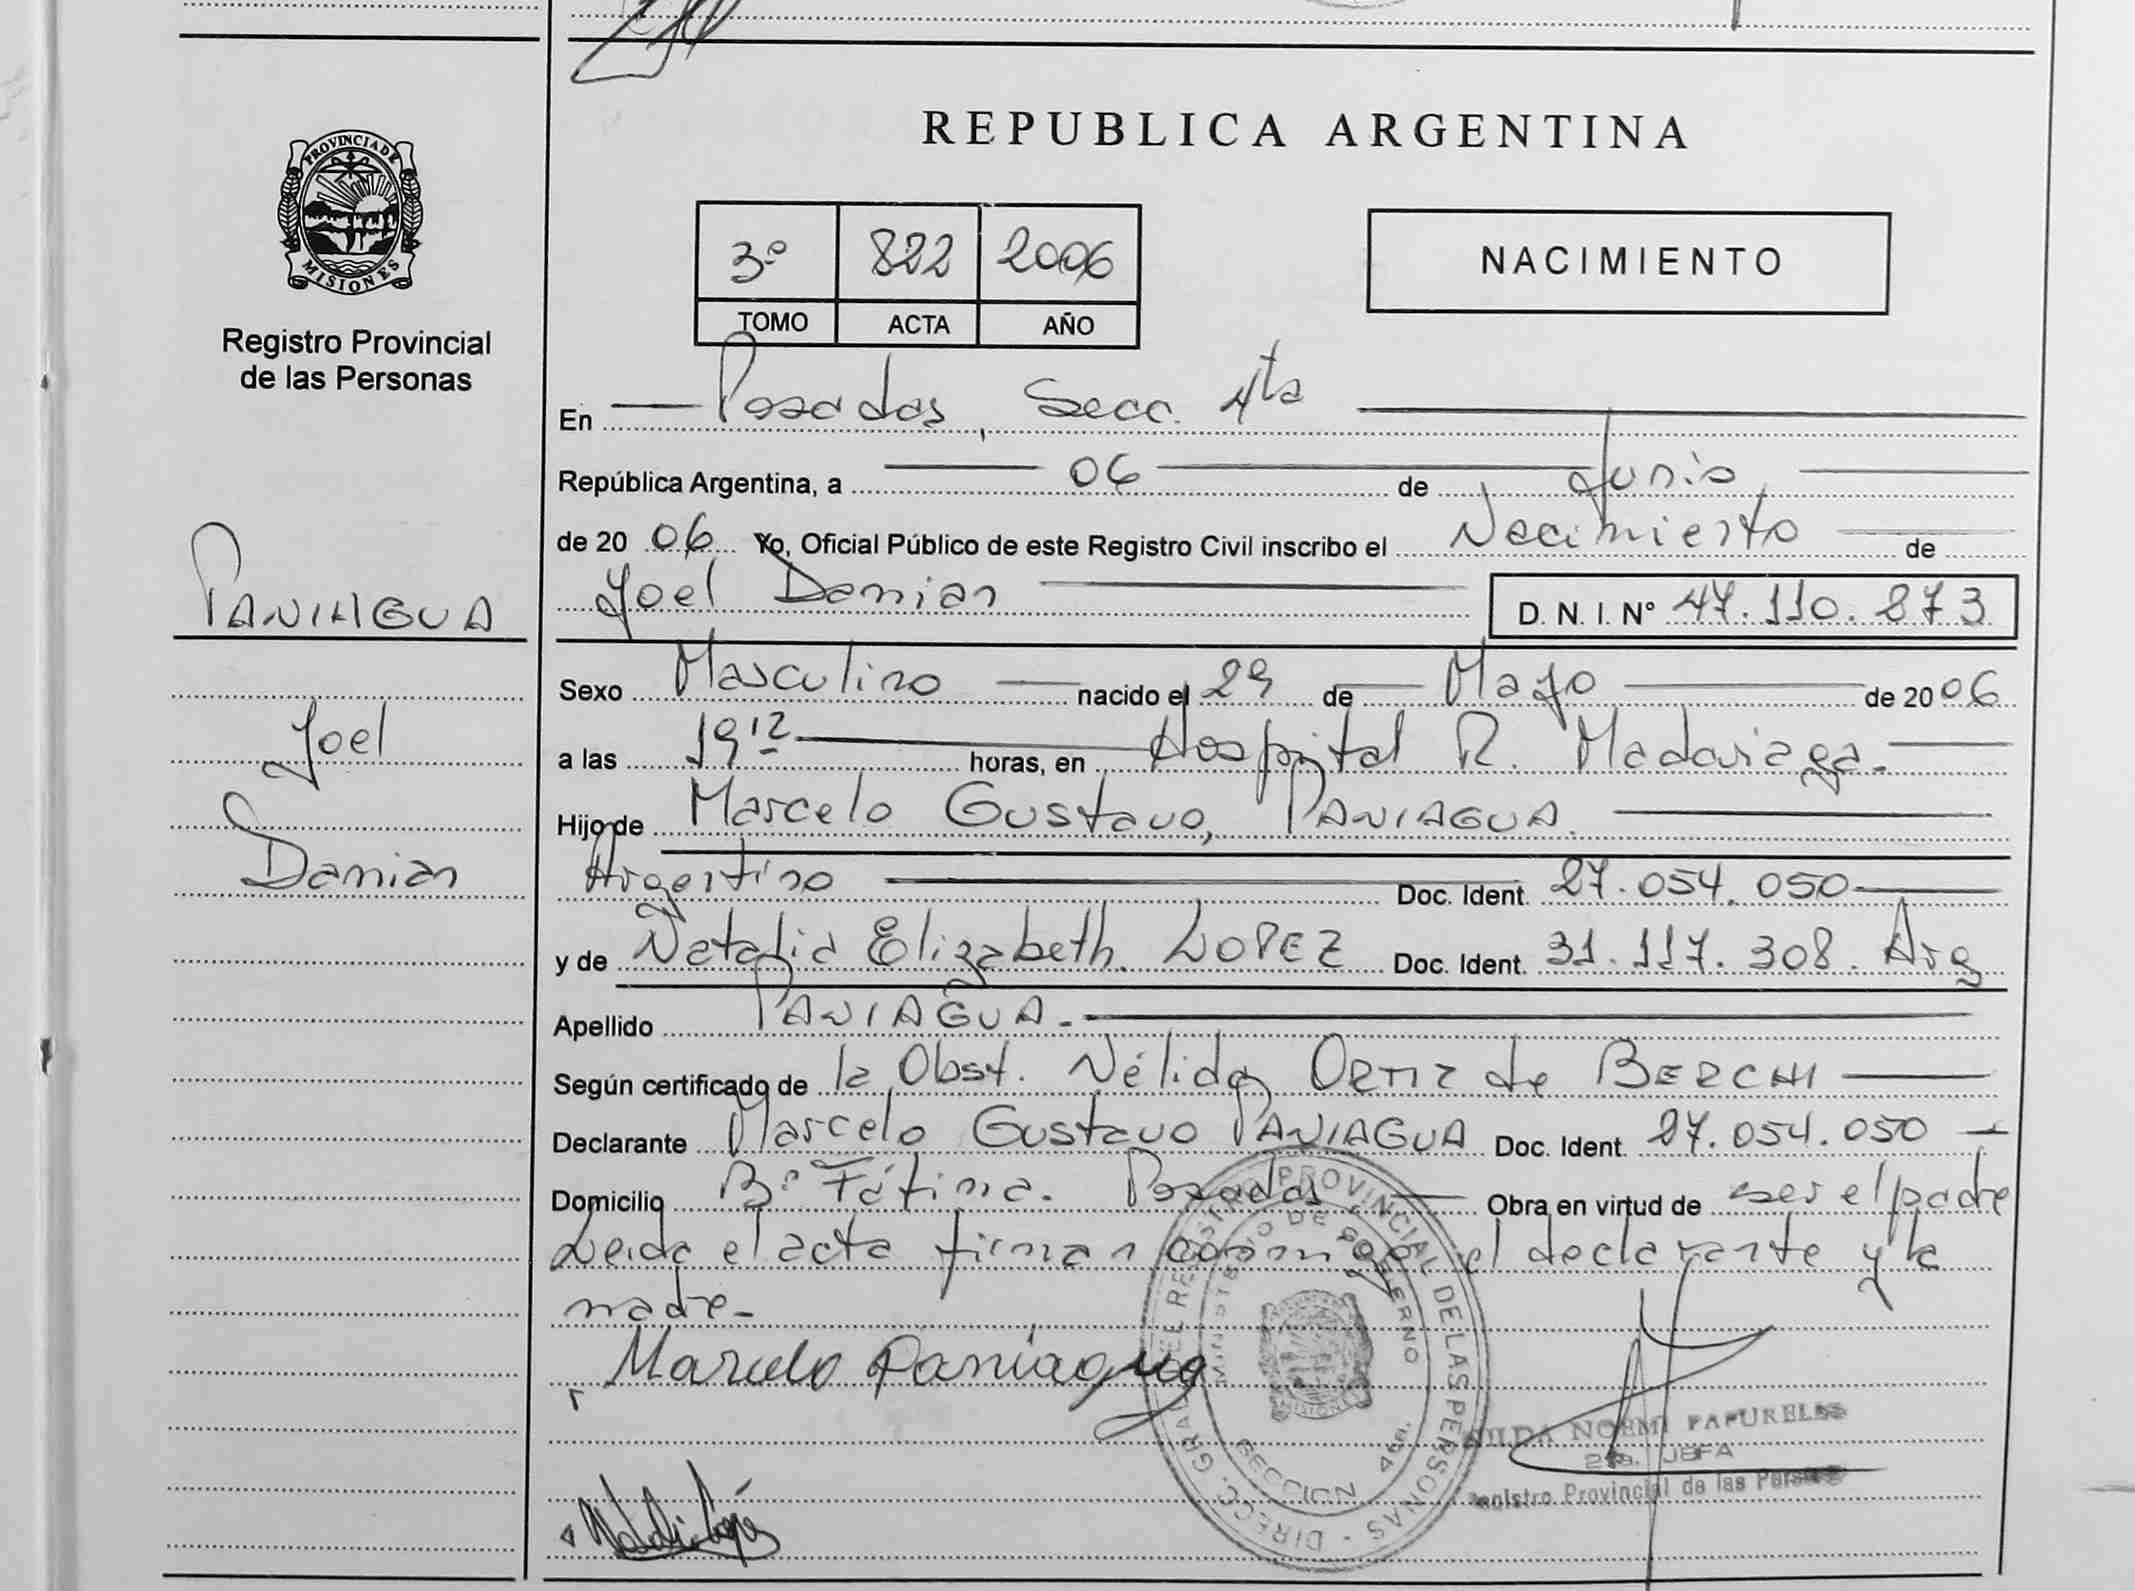 PROVINCIA DE
MISIONES
Registro Provincial
de las Personas
PANIAGUA
Joel
Damian
REPUBLICA ARGENTINA
3º 822 2006
TOMO ACTA AÑO
NACIMIENTO
En Posadas, Secc. 4ta
República Argentina, a 06 de Junio
de 20 06 Yo, Oficial Público de este Registro Civil inscribo el Nacimiento de
Joel Damian D. N. I. Nº 47.110.273
Sexo Masculino nacido el 29 de Mayo de 20 06
a las 19 12 horas, en Hospital R. Madariaga.
Hijo de Marcelo Gustavo, PANIAGUA.
Argentino Doc. Ident. 27.054.050
y de Natalia Elizabeth. LOPEZ Doc. Ident. 31.117.308. Arg
Apellido PANIAGUA.
Según certificado de la Obst. Nélida ORTIZ de BERCHI
Declarante Marcelo Gustavo PANIAGUA Doc. Ident. 27.054.050
Domicilio Bº Fátima. Posadas Obra en virtud de ser el padre
Leida el acta firman conmigo el declarante y la
madre-
Marcelo Paniagua
DIRECC. GRAL. DEL REGISTRO PROVINCIAL DE LAS PERSONAS
MINISTERIO DE GOBIERNO
SECCION 4ta.
MISIONES
NOEMI
2da. JEFA
Registro Provincial de las Personas
Natalia López